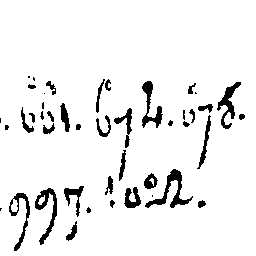 . 661. 674. 675.
997. 1022.